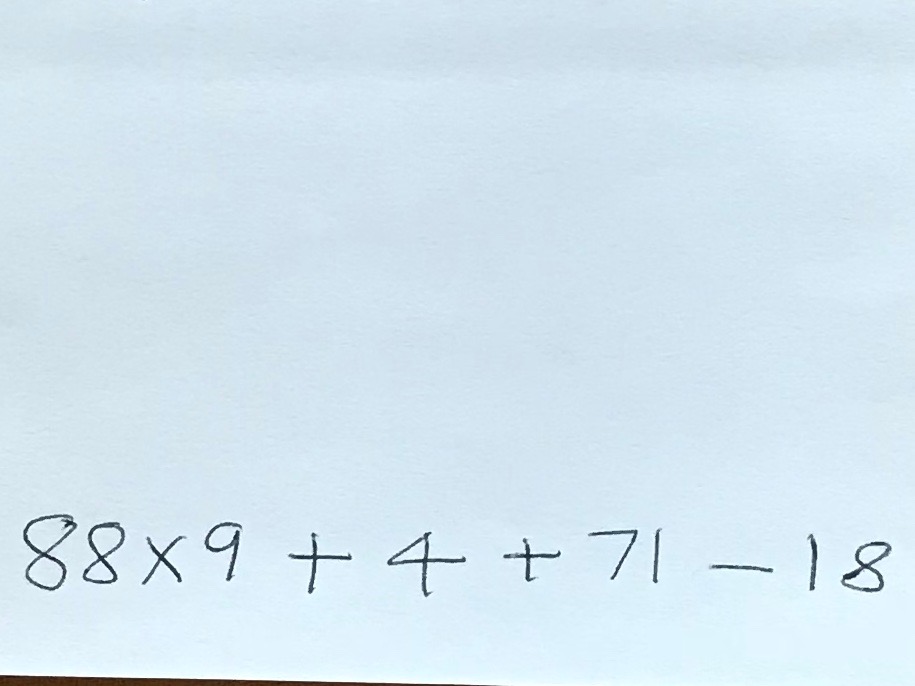 88×9 + 4 + 71 - 18